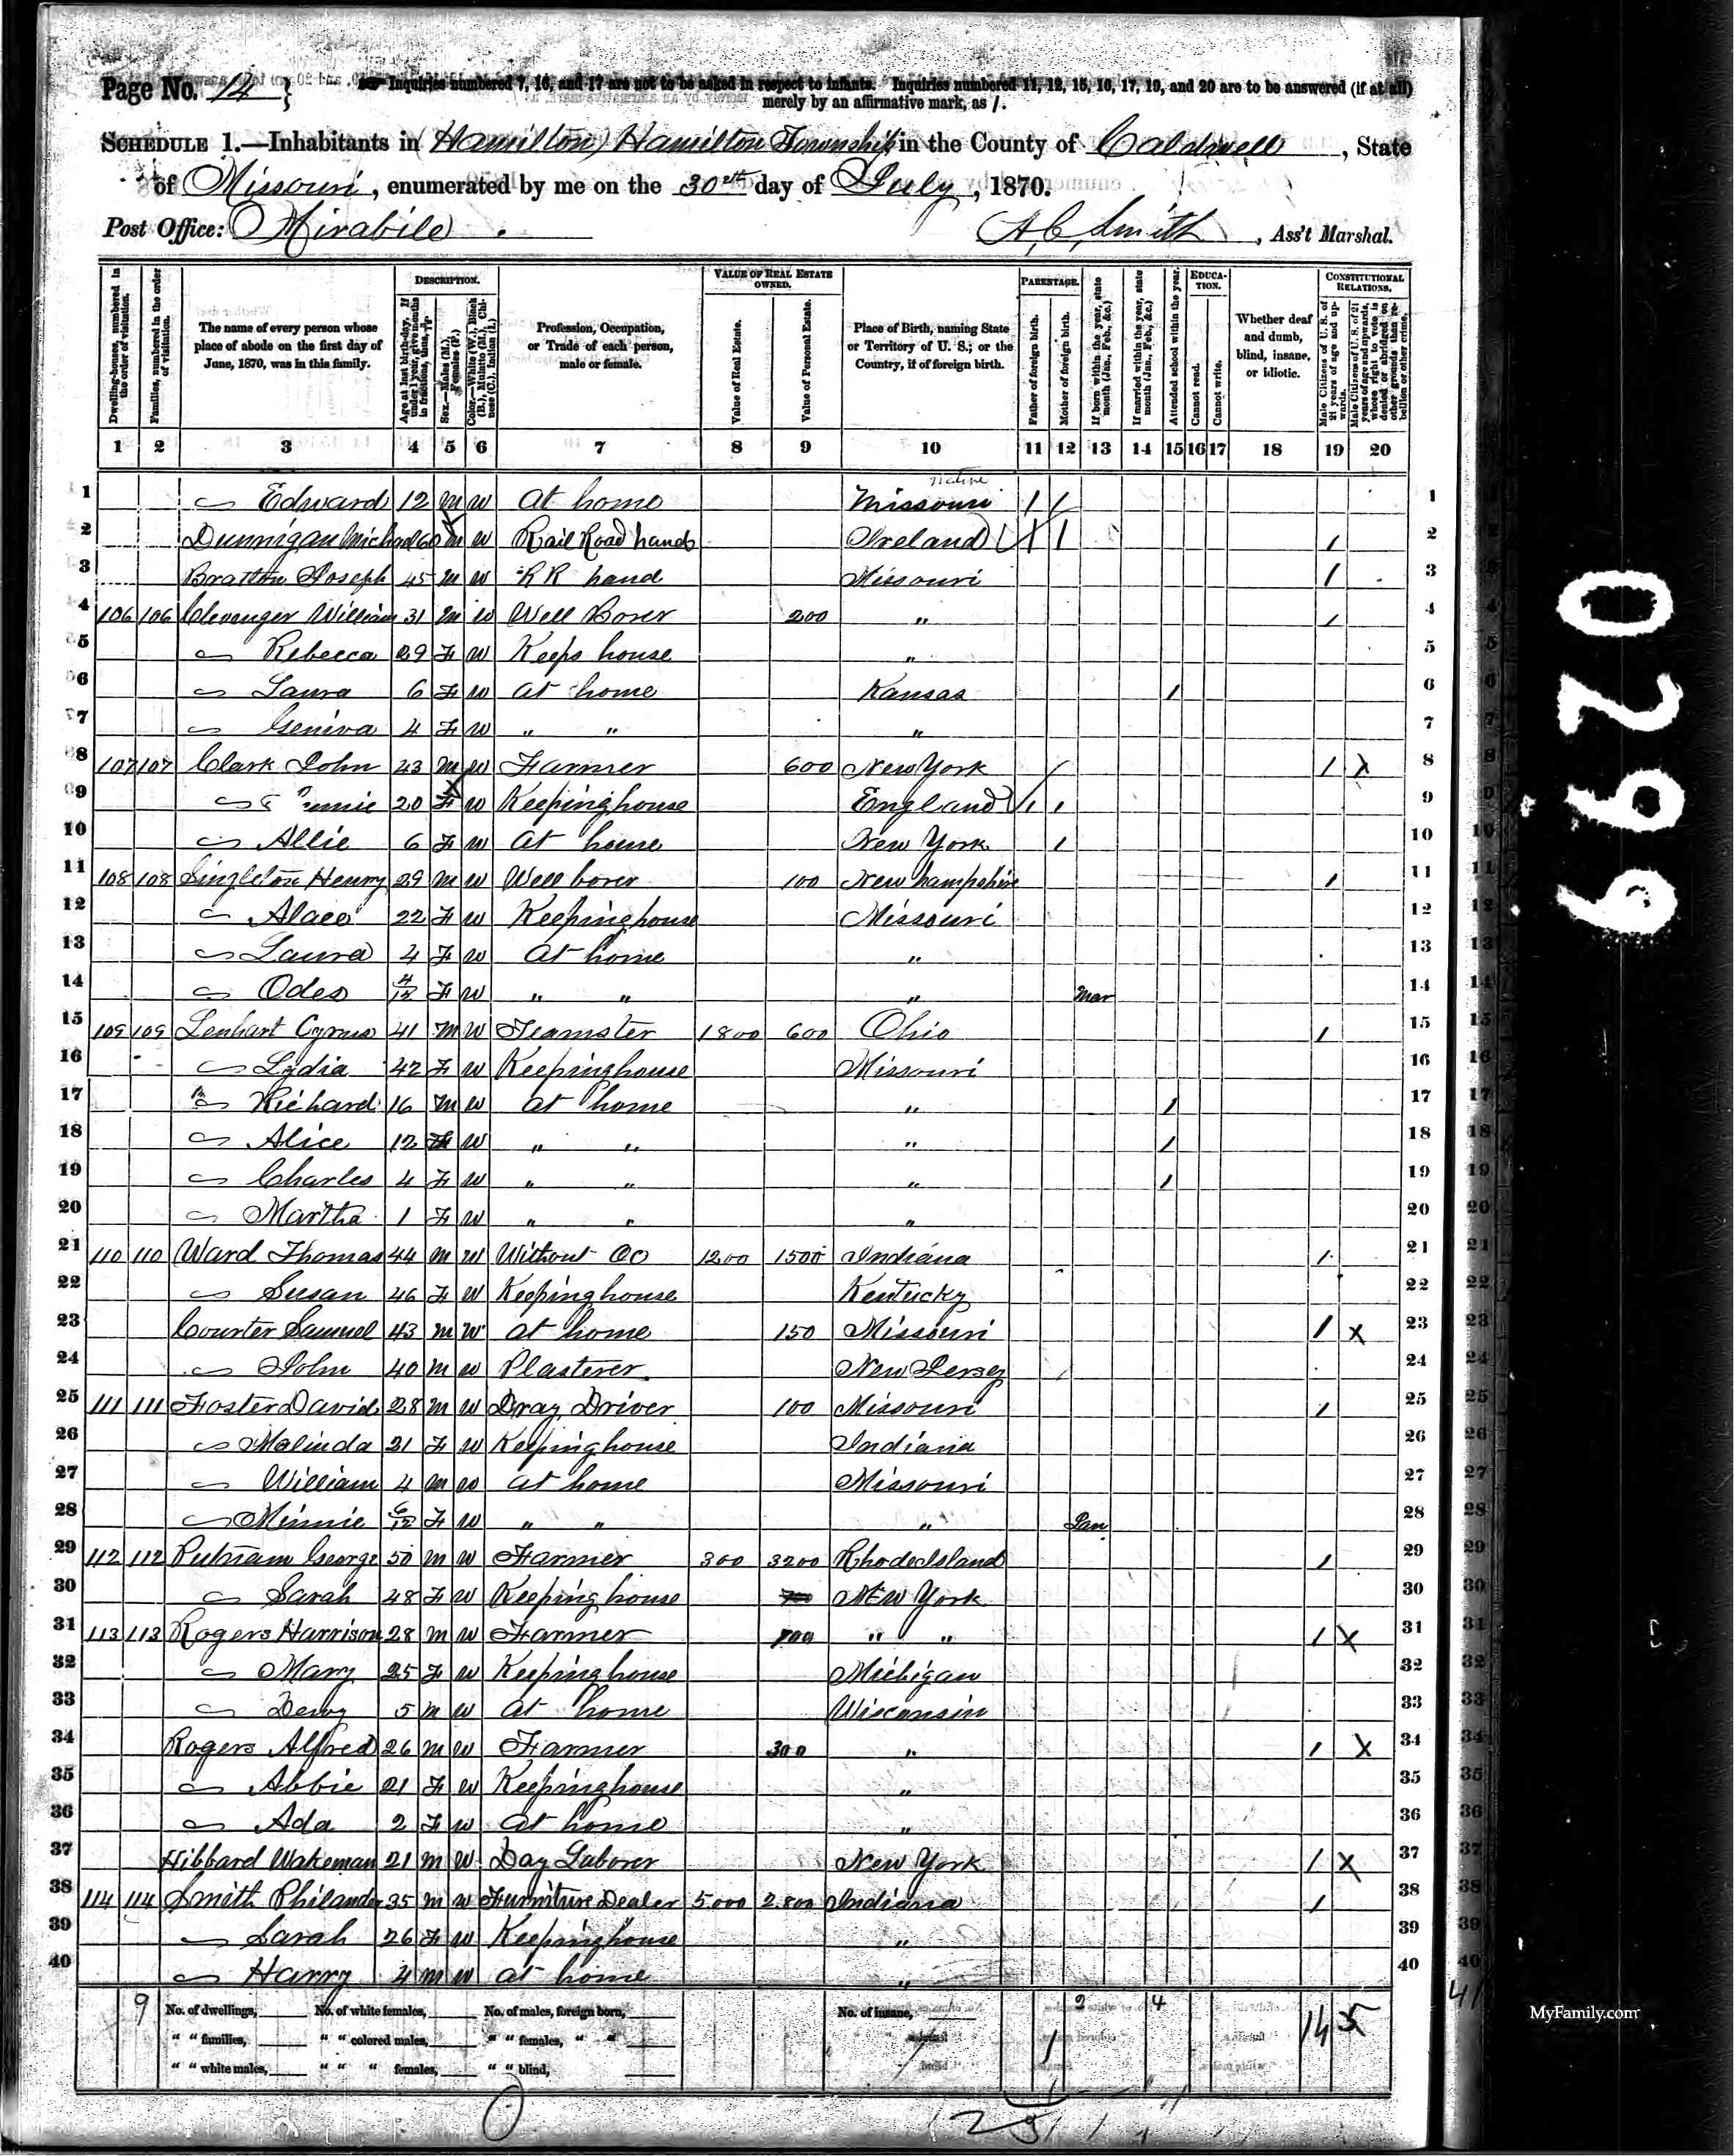 Page No. 14 } Inquiries numbered 7, 16, and 17 are not to be asked in respect to infants. Inquiries numbered 11, 12, 15, 16, 17, 19, and 20 are to be answered (if at all)
merely by an affirmative mark, as /.
SCHEDULE 1.—Inhabitants in (Hamilton) Hamilton Township in the County of Caldwell, State
of Missouri, enumerated by me on the 30th day of July, 1870.
Post Office: Mirabile. A C Smith, Ass't Marshal.
DESCRIPTION. VALUE OF REAL ESTATE OWNED. PARENTAGE. EDUCATION. CONSTITUTIONAL RELATIONS.
Dwelling-houses, numbered in the order of visitation.
Families, numbered in the order of visitation.
The name of every person whose place of abode on the first day of June, 1870, was in this family.
Age at last birth-day. If under 1 year, give months in fractions, thus, 3/12
Sex.—Males (M.), Females (F.)
Color.—White (W.), Black (B.), Mulatto (M.), Chinese (C.), Indian (I.)
Profession, Occupation, or Trade of each person, male or female.
Value of Real Estate.
Value of Personal Estate.
Place of Birth, naming State or Territory of U. S.; or the Country, if of foreign birth.
Father of foreign birth.
Mother of foreign birth.
If born within the year, state month (Jan., Feb., &c.)
If married within the year, state month (Jan., Feb., &c.)
Attended school within the year.
Cannot read.
Cannot write.
Whether deaf and dumb, blind, insane, or idiotic.
Male Citizens of U. S. of 21 years of age and upwards.
Male Citizens of U. S. of 21 years of age and upwards, whose right to vote is denied or abridged on other grounds than rebellion or other crime.
1 2 3 4 5 6 7 8 9 10 11 12 13 14 15 16 17 18 19 20
native
1 Edward 12 M W At home Missouri / / 1
2 Dunnigan Michael 60 M W Rail Road hands Ireland / / / 2
3 Bratton Joseph 45 M W RR hand Missouri / 3
4 106 106 Clevenger William 31 M W Well Borer 200 " / 4
5 Rebecca 29 F W Keeps house " 5
6 Laura 6 F W at home Kansas / 6
7 Geniva 4 F W " " " 7
8 107 107 Clark John 43 M W Farmer 600 New York / / X 8
9 20 F W Keeping house England / / 9
10 Allie 6 F W At home New York / 10
11 108 108 Singleton Henry 29 M W Well borer 100 New hampshire / 11
12 22 F W Keeping house Missouri 12
13 Laura 4 F W At home " 13
14 Odes 4/12 F W " " " Mar 14
15 109 109 Lenhart Cyrus 41 M W Teamster 1800 600 Ohio / 15
16 Lydia 42 F W Keeping house Missouri 16
17 Richard 16 M W at home " / 17
18 Alice 12 F W " " " / 18
19 Charles 4 F W " " " / 19
20 Martha 1 F W " " " 20
21 110 110 Ward Thomas 44 M W Without Oc 1200 1500 Indiana / 21
22 Susan 46 F W Keeping house Kentucky 22
23 Courter Samuel 43 M W at home 150 Missouri / X 23
24 John 40 M W Plasterer New Jersey 24
25 111 111 Foster David 28 M W Dray Driver 100 Missouri / 25
26 Malinda 21 F W Keeping house Indiana 26
27 William 4 M W at home Missouri 27
28 Minnie 6/12 F W " " " Jan 28
29 112 112 Putnam George 50 M W Farmer 300 3200 Rhode Island / 29
30 Sarah 48 F W Keeping house New York 30
31 113 113 Rogers Harrison 28 M W Farmer 700 " " / X 31
32 Mary 25 F W Keeping house Michigan 32
33 5 M W at home Wisconsin 33
34 Rogers Alfred 26 M W Farmer 300 " / X 34
35 Abbie 21 F W Keeping house " 35
36 Ada 2 F W at home " 36
37 Hibbard Wakeman 21 M W Day Laborer New York / X 37
38 114 114 Smith Philander 35 M W Furniture Dealer 5000 2800 Indiana / 38
39 Sarah 26 F W Keeping house " 39
40 Harry 4 M W at home " 40
9 No. of dwellings, No. of white females, No. of males, foreign born, No. of insane, 2 4 14 5
" " families, " " colored males, " " females, " " 1
" " white males, " " " females, " " blind,
0299
MyFamily.com